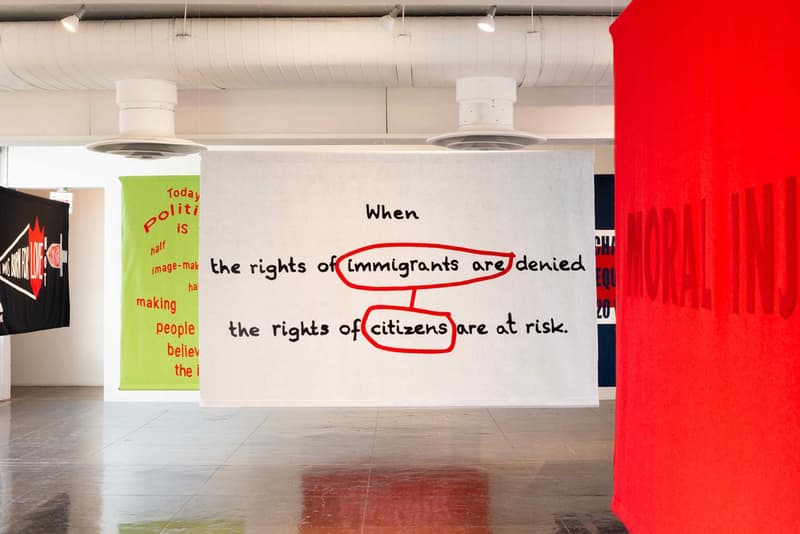 When
the rights of immigrants are denied
the rights of citizens are at risk.
Today
Politi
is
half
image-mak
ha
making
people
believ
the i
BORN FOR LOVE
CHA
EQU
20
MORAL INJ